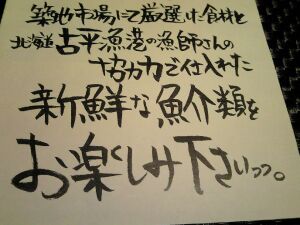 築地市場にて厳選した食材と
北海道古平漁港の漁師さんの
協力で仕入れた
新鮮な魚介類を
お楽しみ下さいっっ。